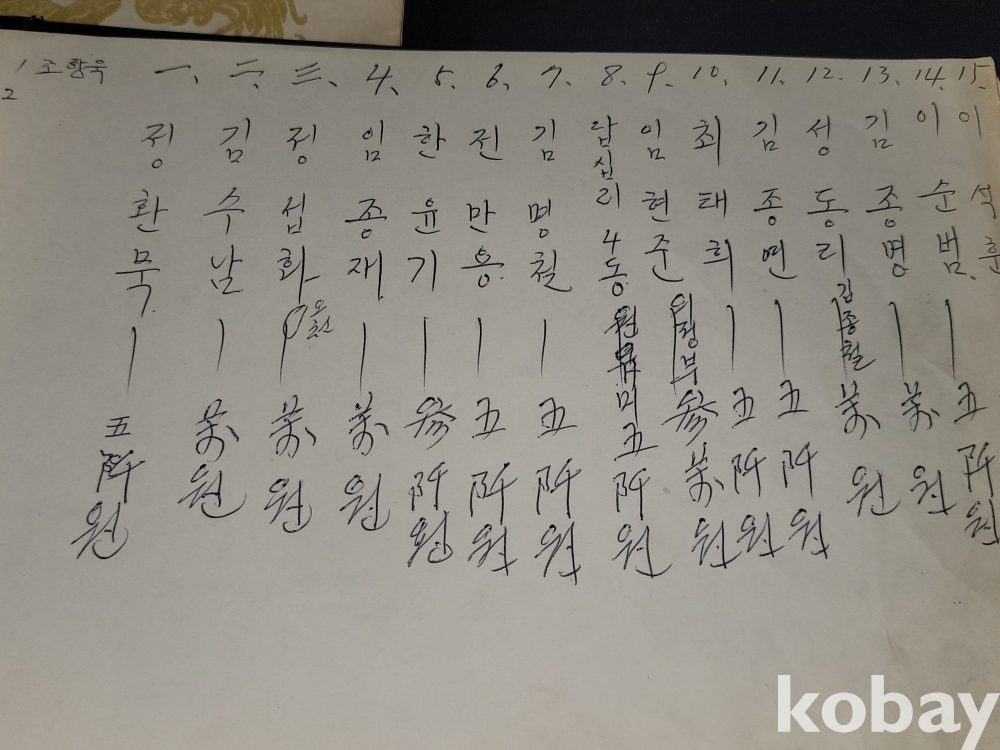 1 조항욱
2
一、 정환묵 | 五阡원
二、 김수남 | 萬원
三、 정섭화 | 萬원
4、 임종재 | 萬원
5、 한윤기 | 參阡원
6、 전만용 | 五阡원
7、 김명철 | 五阡원
8、 답십리 4동 五阡원
9、 임현준 參萬원
10、 최태희 | 五阡원
11、 김종연 | 五阡원
12. 성동리 김종철 萬원
13、 김종명 | 萬원
14. 이순범 | 五阡원
15. 이석훈
kobay